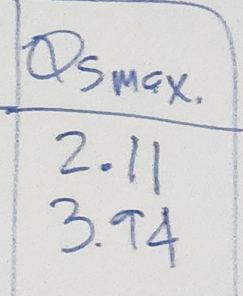 Qsmax.
2.11
3.94